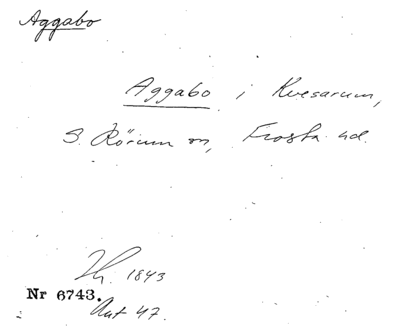 Aggabo
Aggabo i Kvesarum,
S. Rörum sn, Frosta hd.
1843
Nr 6743.
Aut 47.